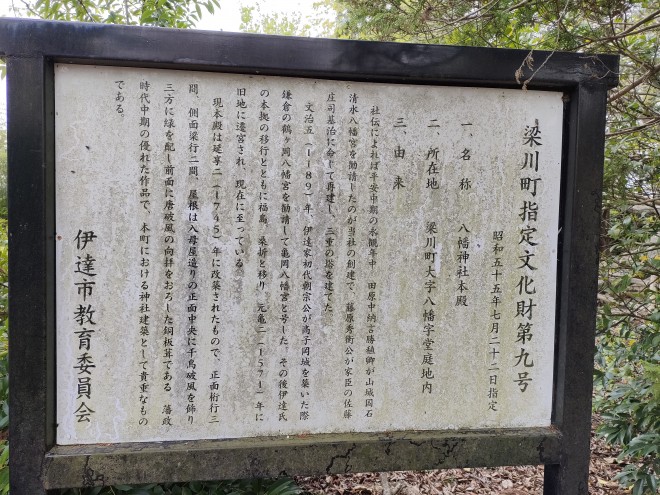 梁川町指定文化財第九号
昭和五十五年七月二十二日指定
一、名称 八幡神社本殿
二、所在地 梁川町大字八幡字堂庭地内
三、由来
社伝によれば平安中期の永観年中、田原中納言勝植卿が山城国石
清水八幡宮を勧請したのが当社の創建で、藤原秀衡公が家臣の佐藤
庄司基治に命して再建し、三重の塔を建てた。
文治五(1189)年、伊達家初代朝宗公が高子岡城を築いた際
鎌倉の鶴ヶ岡八幡宮を勧請して亀岡八幡宮と号した。その後伊達氏
の本拠の移行とともに福島、桑折と移り、元亀二(1571)年に
旧地に遷宮され、現在に至っている。
現本殿は延享二(1745)年に改築されたもので、正面桁行三
間、側面梁行二間、屋根は入母屋造りの正面中央に千鳥破風を飾り
三方に縁を配し前面に唐破風の向拝をおろした銅板葺である。藩政
時代中期の優れた作品で、本町における神社建築として貴重なもの
である。
伊達市教育委員会